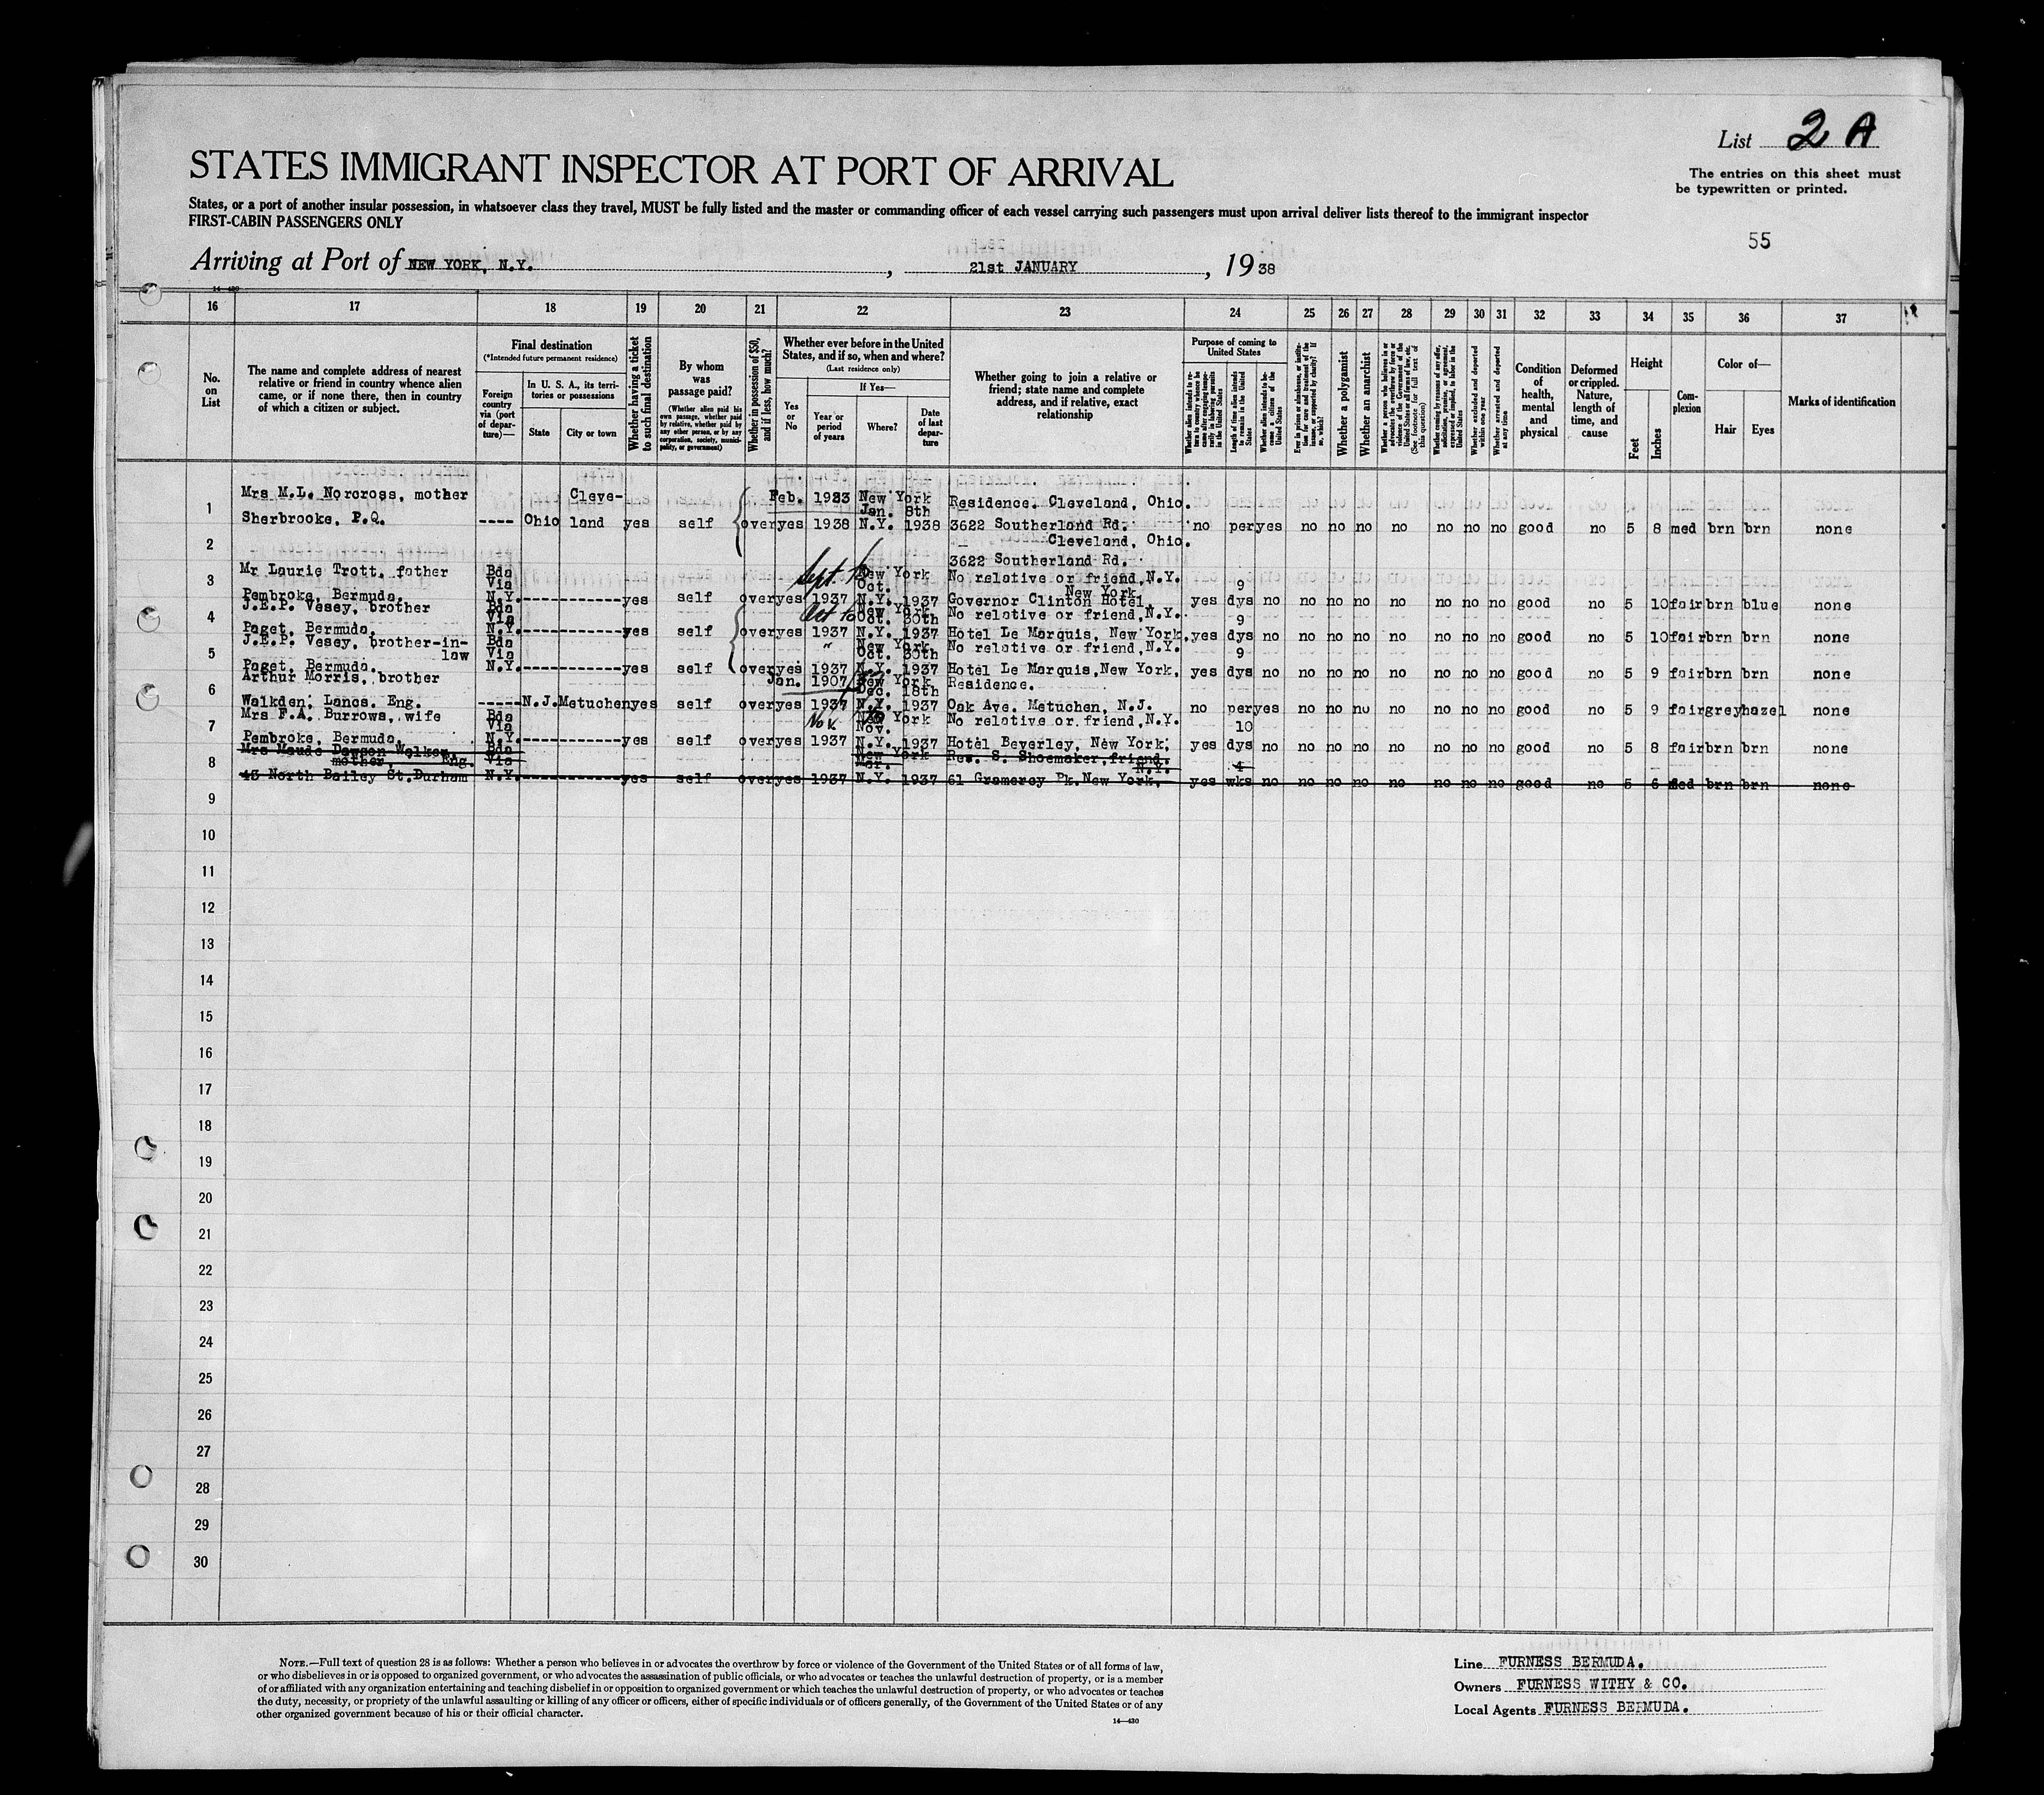 List 2 A
The entries on this sheet must
be typewritten or printed.
STATES IMMIGRANT INSPECTOR AT PORT OF ARRIVAL
States, or a port of another insular possession, in whatsoever class they travel, MUST be fully listed and the master or commanding officer of each vessel carrying such passengers must upon arrival deliver lists thereof to the immigrant inspector
FIRST-CABIN PASSENGERS ONLY
55
Arriving at Port of NEW YORK, N.Y. , 21st JANUARY , 19 38
14—430
16 17 18 19 20 21 22 23 24 25 26 27 28 29 30 31 32 33 34 35 36 37
No. on List
The name and complete address of nearest
relative or friend in country whence alien
came, or if none there, then in country
of which a citizen or subject.
Final destination
(*Intended future permanent residence)
Foreign country via (port of departure)—
In U. S. A., its territories or possessions
State
City or town
Whether having a ticket to such final destination
By whom was passage paid?
(Whether alien paid his own passage, whether paid by relative, whether paid by any other person, or by any corporation, society, municipality, or government)
Whether in possession of $50, and if less, how much?
Whether ever before in the United States, and if so, when and where?
(Last residence only)
Yes or No
If Yes—
Year or period of years
Where?
Date of last departure
Whether going to join a relative or
friend; state name and complete
address, and if relative, exact
relationship
Purpose of coming to United States
Length of time alien intends to remain in the United States
Whether alien intends to become a citizen of the United States
Whether a polygamist
Whether an anarchist
Whether excluded and deported within one year
Whether arrested and deported at any time
Condition of health, mental and physical
Deformed or crippled. Nature, length of time, and cause
Height
Feet
Inches
Complexion
Color of—
Hair
Eyes
Marks of identification
Mrs M.L. Norcross, mother Cleve- Feb. 1923 New York Residence. Cleveland, Ohio.
1 Jan. 8th
Sherbrooke, P.Q. ---- Ohio land yes self over yes 1938 N.Y. 1938 3622 Southerland Rd. no per yes no no no no no no no good no 5 8 med brn brn none
2 Cleveland, Ohio.
3622 Southerland Rd.
Mr Laurie Trott, father Bda Sept. New York No relative or friend, N.Y.
3 Via Oct. New York 9
Pembroke, Bermuda. N.Y. ------------ yes self over yes 1937 N.Y. 1937 Governor Clinton Hotel, yes dys no no no no no no no no good no 5 10 fair brn blue none
J.E.P. Vesey, brother Bda Oct New York No relative or friend, N.Y.
4 Via Oct. 30th 9
Paget, Bermuda. N.Y. ------------ yes self over yes 1937 N.Y. 1937 Hotel Le Marquis, New York. yes dys no no no no no no no no good no 5 10 fair brn brn none
J.E.P. Vesey, brother-in- Bda " New York No relative or friend, N.Y.
5 law Via Oct. 30th 9
Paget, Bermuda. N.Y. ------------ yes self over yes 1937 N.Y. 1937 Hotel Le Marquis, New York. yes dys no no no no no no no no good no 5 9 fair brn brn none
Arthur Morris, brother Jan. 1907 New York Residence.
6 Dec. 18th
Walkden, Lancs. Eng. ----- N.J. Metuchen yes self over yes 1937 N.Y. 1937 Oak Ave. Metuchen, N.J. no per yes no no no no no no no good no 5 9 fair grey hazel none
Mrs F.A. Burrows, wife Bda Nov. New York No relative or friend, N.Y.
7 Via Nov. 10
Pembroke, Bermuda. N.Y. ------------ yes self over yes 1937 N.Y. 1937 Hotel Beverley, New York, yes dys no no no no no no no no good no 5 8 fair brn brn none
Mrs Maude Dawson Walker, Bda New York Res. S. Shoemaker, friend.
8 mother, Eng. Via Mar. N.Y. 4
43 North Bailey St. Durham N.Y. ------------ yes self over yes 1937 N.Y. 1937 61 Gramercy Pk. New York, yes wks no no no no no no no no good no 5 6 Med brn brn none
9
10
11
12
13
14
15
16
17
18
19
20
21
22
23
24
25
26
27
28
29
30
NOTE.—Full text of question 28 is as follows: Whether a person who believes in or advocates the overthrow by force or violence of the Government of the United States or of all forms of law,
or who disbelieves in or is opposed to organized government, or who advocates the assassination of public officials, or who advocates or teaches the unlawful destruction of property, or is a member
of or affiliated with any organization entertaining and teaching disbelief in or opposition to organized government or which teaches the unlawful destruction of property, or who advocates or teaches
the duty, necessity, or propriety of the unlawful assaulting or killing of any officer or officers, either of specific individuals or of officers generally, of the Government of the United States or of any
other organized government because of his or their official character.
14—430
Line FURNESS BERMUDA.
Owners FURNESS WITHY & CO.
Local Agents FURNESS BERMUDA.